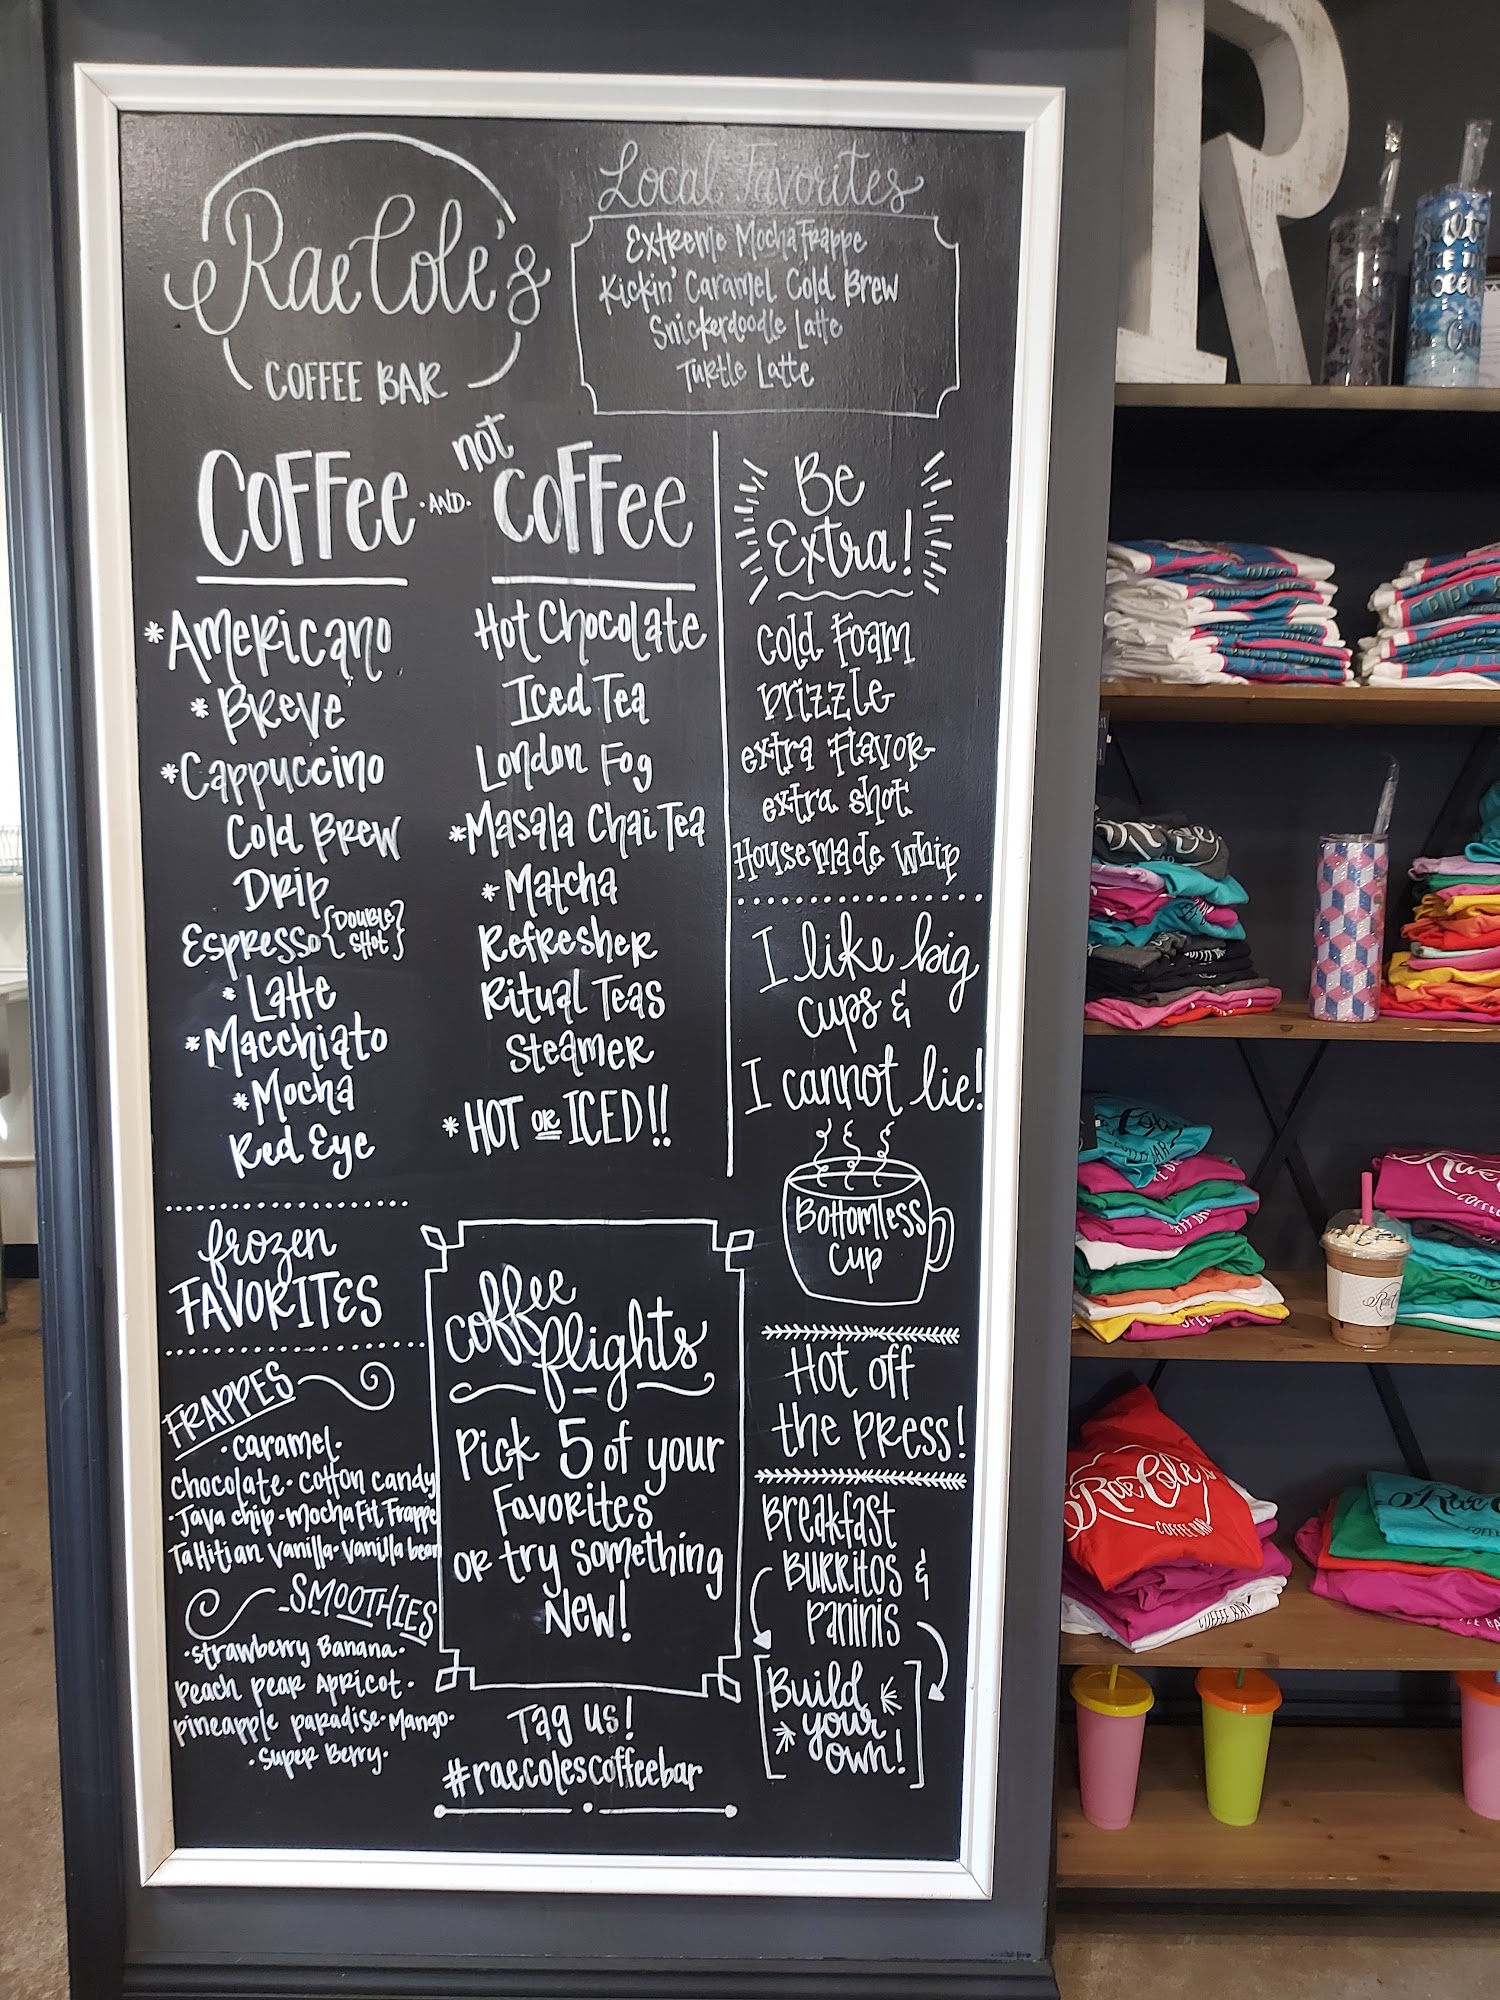 RaeCole's
COFFEE BAR
Local Favorites
Extreme Mocha Frappe
Kickin' Caramel Cold Brew
Snickerdoodle Latte
Turtle Latte
Coffee AND not coffee
*Americano
*Breve
*Cappuccino
Cold Brew
Drip
Espresso {DOUBLE SHOT}
*Latte
*Macchiato
*Mocha
Red Eye
Hot Chocolate
Iced Tea
London Fog
*Masala Chai Tea
*Matcha
Refresher
Ritual Teas
Steamer
*HOT OR ICED!!
Be
Extra!
Cold Foam
Drizzle
extra Flavor
extra shot
Housemade Whip
I like big
cups &
I cannot lie!
Bottomless
Cup
Hot off
the press!
Breakfast
Burritos &
Paninis
[Build
your
own!]
frozen
FAVORITES
FRAPPES
·caramel·
chocolate·cotton candy
·Java chip·mocha Fit Frappe
Tahitian vanilla·vanilla bean
SMOOTHIES
·strawberry Banana·
peach pear Apricot·
pineapple paradise·Mango·
·Super Berry·
coffee
flights
Pick 5 of your
Favorites
or try something
New!
Tag us!
#raecolescoffeebar
R
RaeCole's
COFFEE BAR